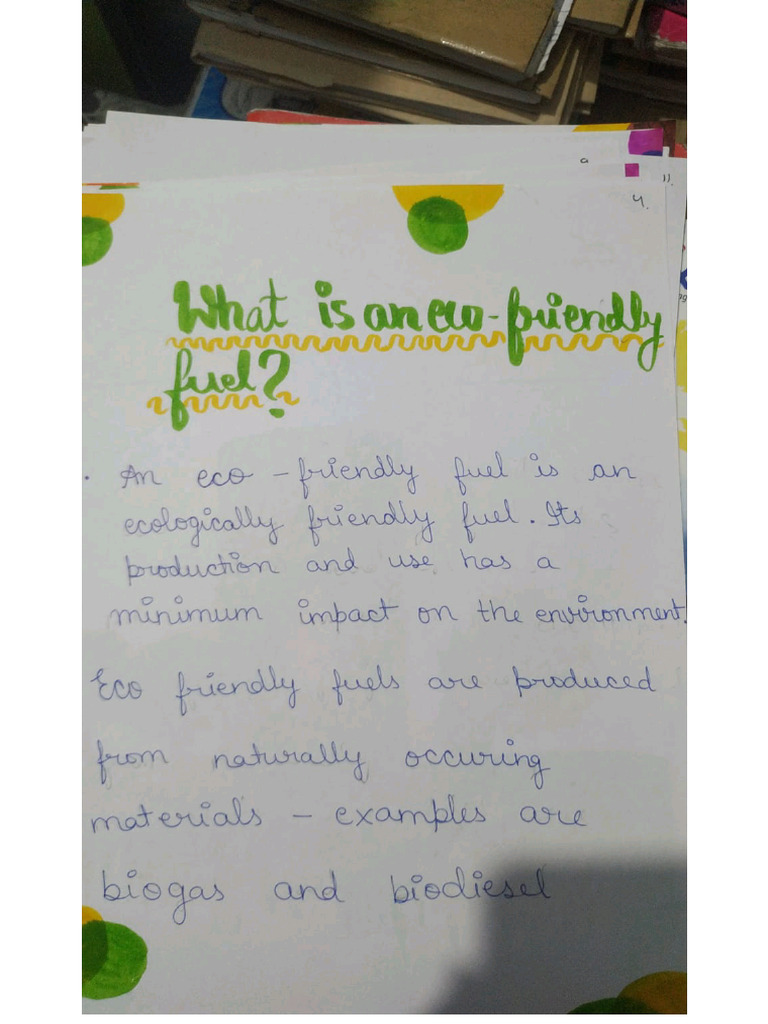 11.
4.
What is an eco-friendly
fuel?
. An eco-friendly fuel is an
ecologically friendly fuel. Its
production and use has a
minimum impact on the environment.
Eco friendly fuels are produced
from naturally occuring
materials - examples are
biogas and biodiesel